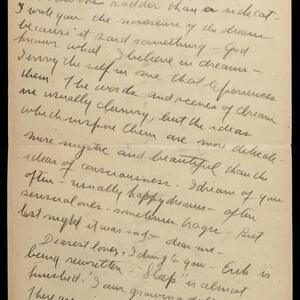 sadder than a sick cat -
I write you the nonsense of the dream
because it said something - God
knows what. I believe in dreams -
I envy the self in me that experiences
them. The words and scenes of dream
are usually clumsy, but the ideas
which inspire them are more delicate -
more mystic and beautiful than the
ideas of consciousness. I dream of you
often - usually happy dreams - often
sensual ones - sometimes tragic - But
last night it was sad - dear me -
Dearest lover, I cling to you - Erik is
being rewritten - "Sleep" is almost
finished. I am growing